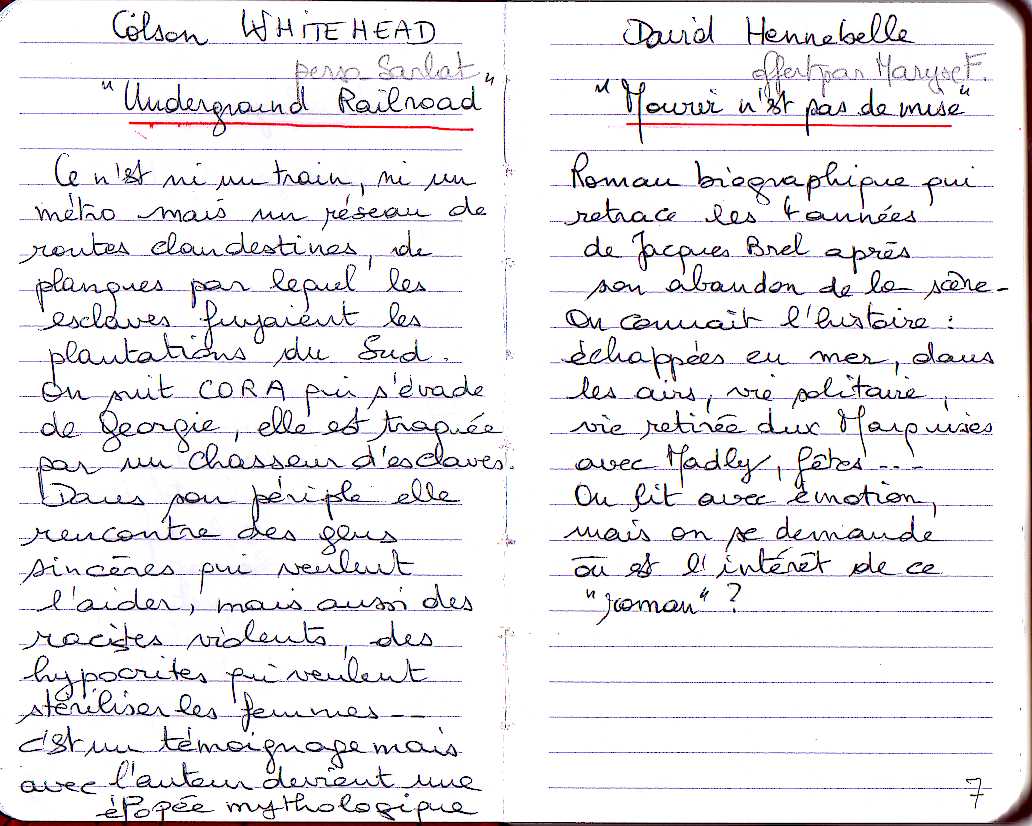 Colson WHITEHEAD
perso Sarlat
"Underground Railroad"
Ce n'est ni un train, ni un
métro mais un réseau de
routes clandestines, de
planques par lequel les
esclaves fuyaient les
plantations du Sud.
On suit CORA qui s'évade
de Georgie, elle est traquée
par un chasseur d'esclaves.
Dans son périple elle
rencontre des gens
sincères qui veulent
l'aider, mais aussi des
racistes violents, des
hypocrites qui veulent
stériliser les femmes --
c'est un témoignage mais
avec l'auteur devient une
épopée mythologique
David Hennebelle
offert par Maryse F.
"Mourir n'est pas de mise"
Roman biographique qui
retrace les 4 années
de Jacques Brel après
son abandon de la scène-
On connait l'histoire :
échappées en mer, dans
les airs, vie solitaire,
vie retirée aux Marquises
avec Madly, fêtes ---
On lit avec émotion,
mais on se demande
où est l'intérêt de ce
"roman" ?
7